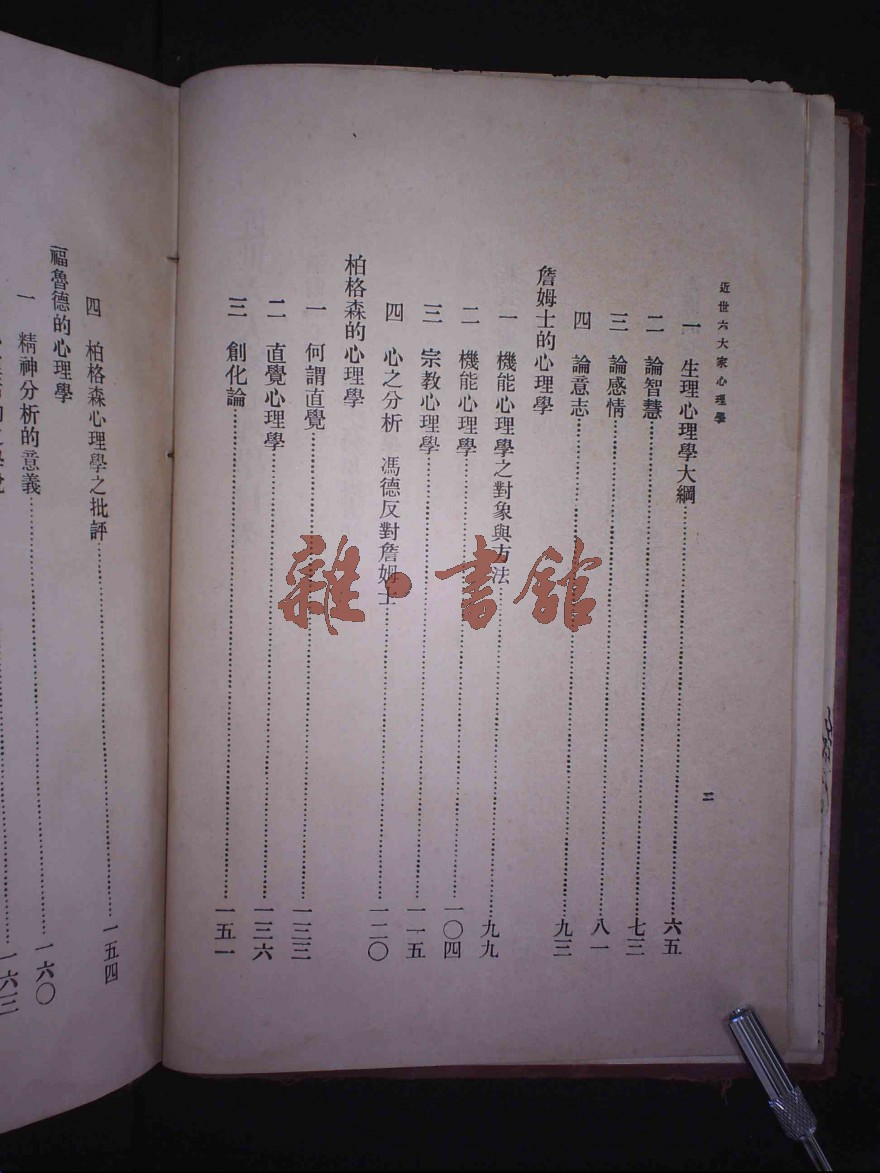 近世六大家心理學
二
一 生理心理學大綱 六五
二 論智慧 七三
三 論感情 八一
四 論意志 九三
詹姆士的心理學
一 機能心理學之對象與方法 九九
二 機能心理學 一〇四
三 宗教心理學 一一五
四 心之分析 馮德反對詹姆士 一二〇
柏格森的心理學
一 何謂直覺 一三三
二 直覺心理學 一三六
三 創化論 一五一
四 柏格森心理學之批評 一五四
福魯德的心理學
一 精神分析的意義 一六〇
一六三
雜·書館